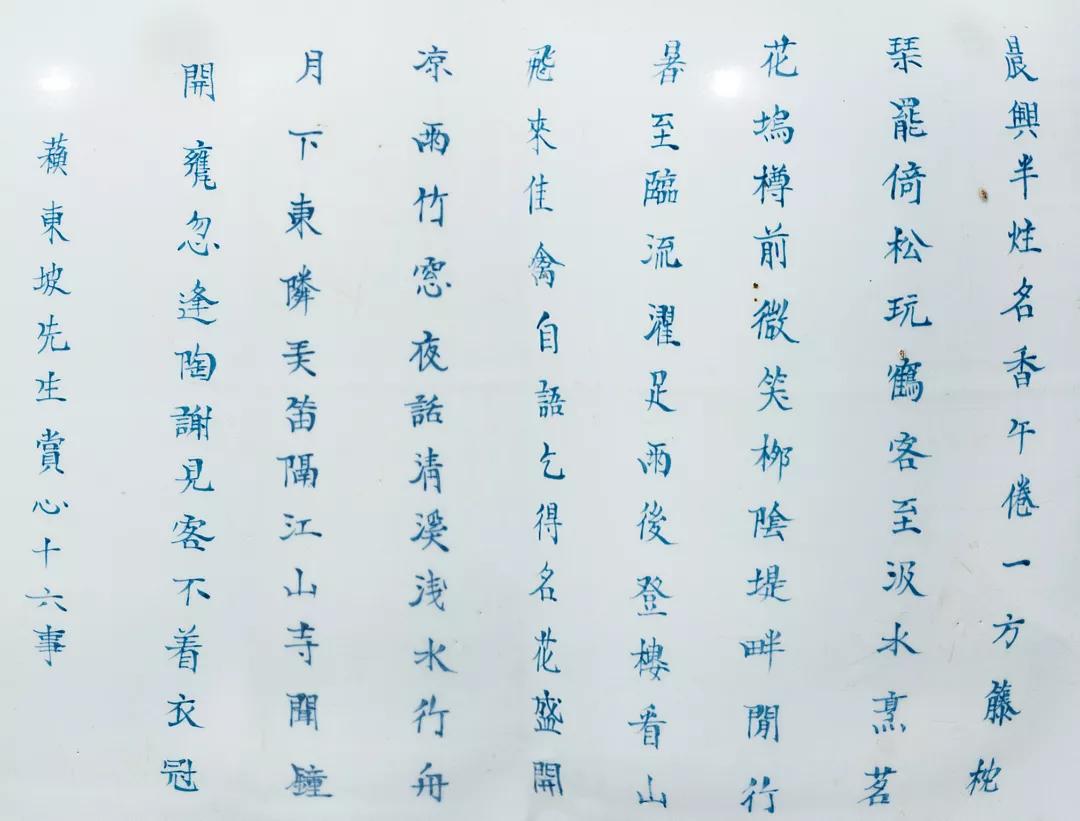 晨興半炷名香午倦一方藤枕
琹罷倚松玩鶴客至汲水烹茗
花塢樽前微笑栁陰堤畔閒行
暑至臨流濯足雨後登樓看山
飛來佳禽自語乞得名花盛開
凉雨竹窓夜話清溪浅水行舟
月下東隣美笛隔江山寺聞鐘
開甕忽逢陶謝見客不着衣冠
蘇東坡先生賞心十六事